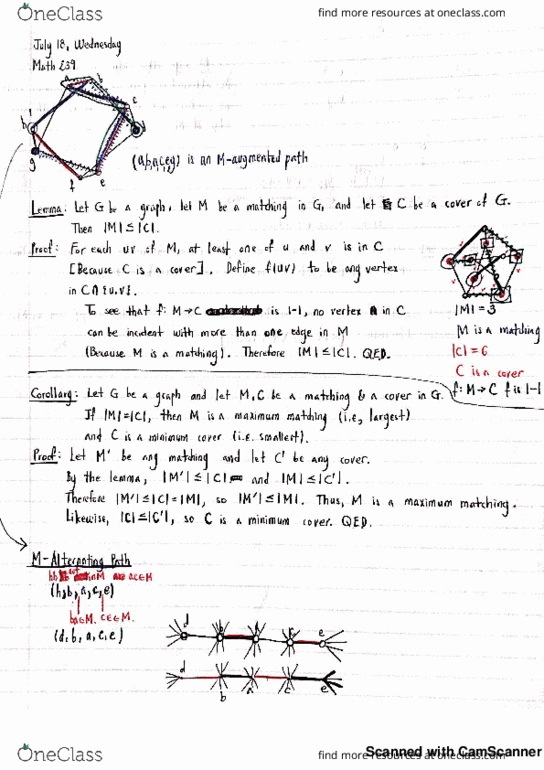 OneClass
find more resources at oneclass.com
July 18, Wednesday
Math 239
a
b
c
h
d
g
f
e
is an M-augmented path
Lemma: Let G be a graph, let M be a matching in G, and let C be a cover of G.
Then |M| ≤ |C|.
Proof: For each uv of M, at least one of u and v is in C
[Because C is a cover]. Define f(uv) to be any vertex
in C∩{u,v}.
To see that f: M→C is 1-1, no vertex in C
can be incident with more than one edge in M
(Because M is a matching). Therefore |M| ≤ |C|. QED.
|M| = 3
M is a matching
|C| = 6
C is a cover
f: M→C f is 1-1
Corollary: Let G be a graph and let M,C be a matching & a cover in G.
If |M|=|C|, then M is a maximum matching (i.e, largest)
and C is a minimum cover (i.e. smallest).
Proof: Let M' be any matching and let C' be any cover.
By the lemma, |M'| ≤ |C| and |M| ≤ |C'|.
Therefore |M'| ≤ |C| = |M|, so |M'| ≤ |M|. Thus, M is a maximum matching.
Likewise, |C| ≤ |C'|, so C is a minimum cover. QED.
M-Alternating Path
ac∈M
(h,b,a,c,e)
ba∈M. ce∈M.
(d,b,a,c,e)
d
e
d
b
a
c
e
Scanned with CamScanner
OneClass
find more resources at oneclass.com